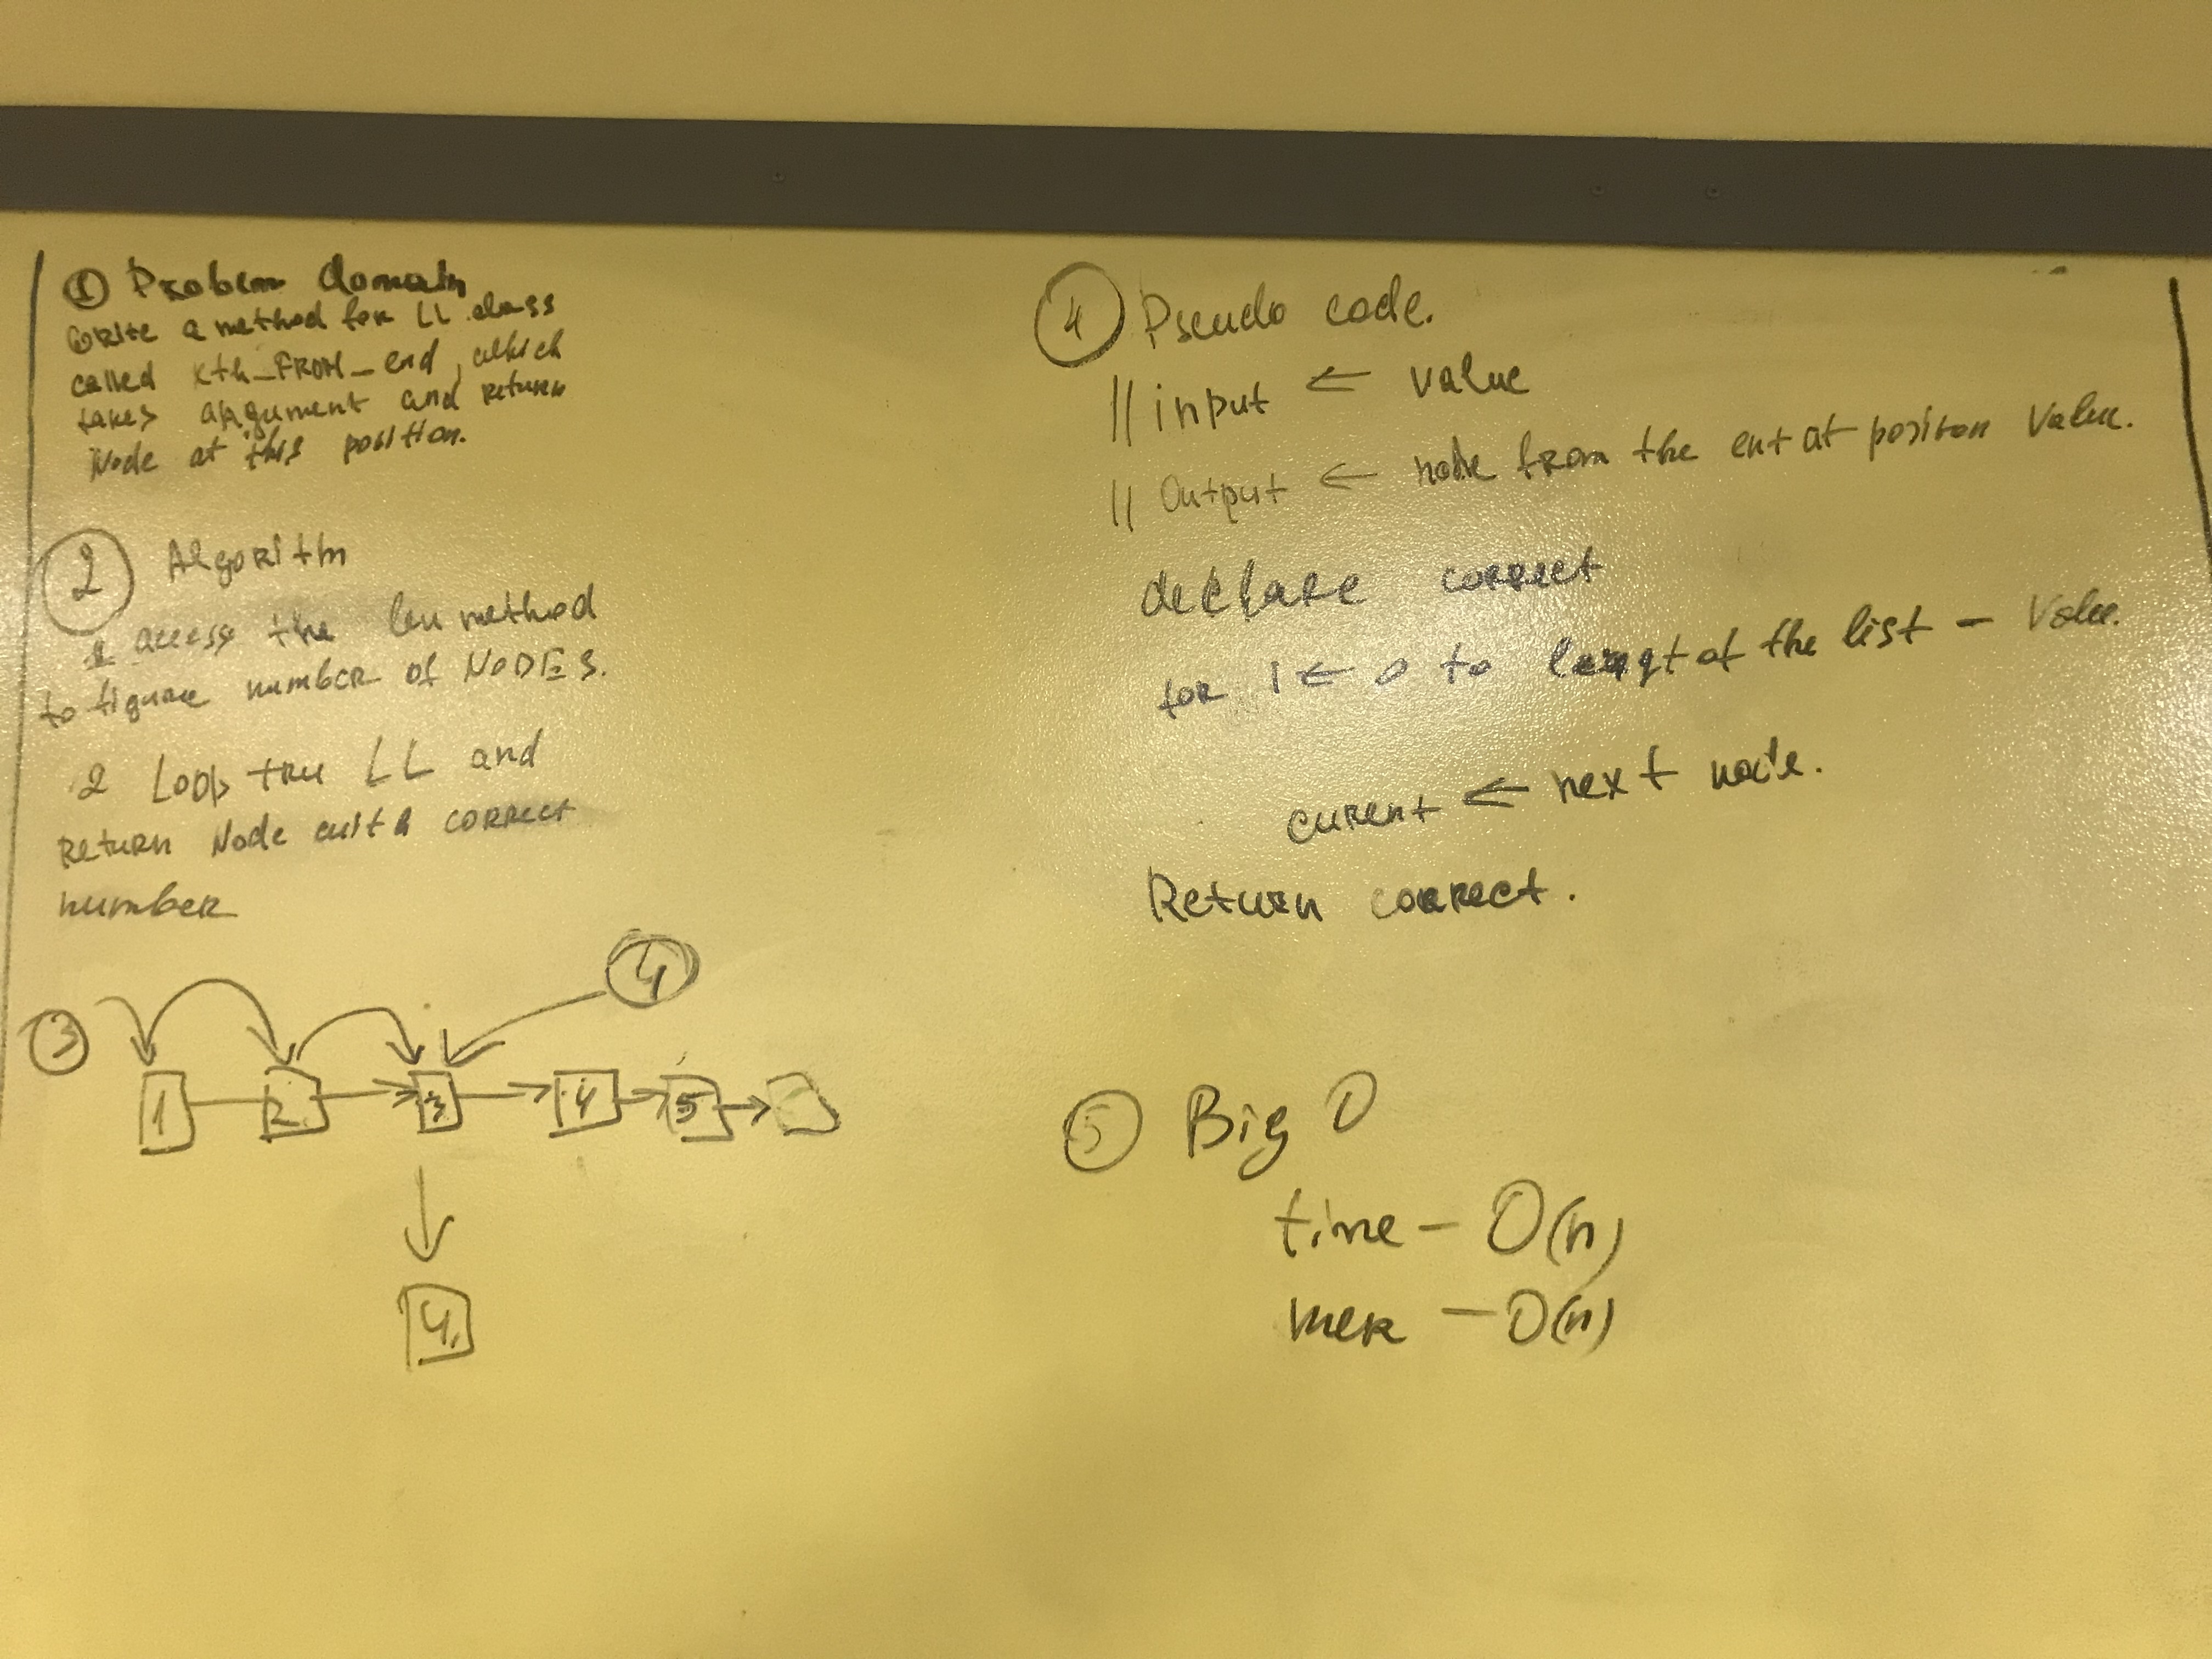 ① Problem domain
Write a method for LL class
called kth_FROM_end, which
takes argument and return
Node at this position.
② Algorithm
1 access the len method
to figure number of NODES.
2 Loop thu LL and
Return Node with correct
number
③
4
1 2 3 4 5
4
④ Pseudo code.
|| input ← value
|| Output ← node from the ent at position Value.
declare correct
for i ← 0 to lengt of the list - Value.
curent ← next node.
Return correct.
⑤ Big O
time - O(n)
mer - O(n)